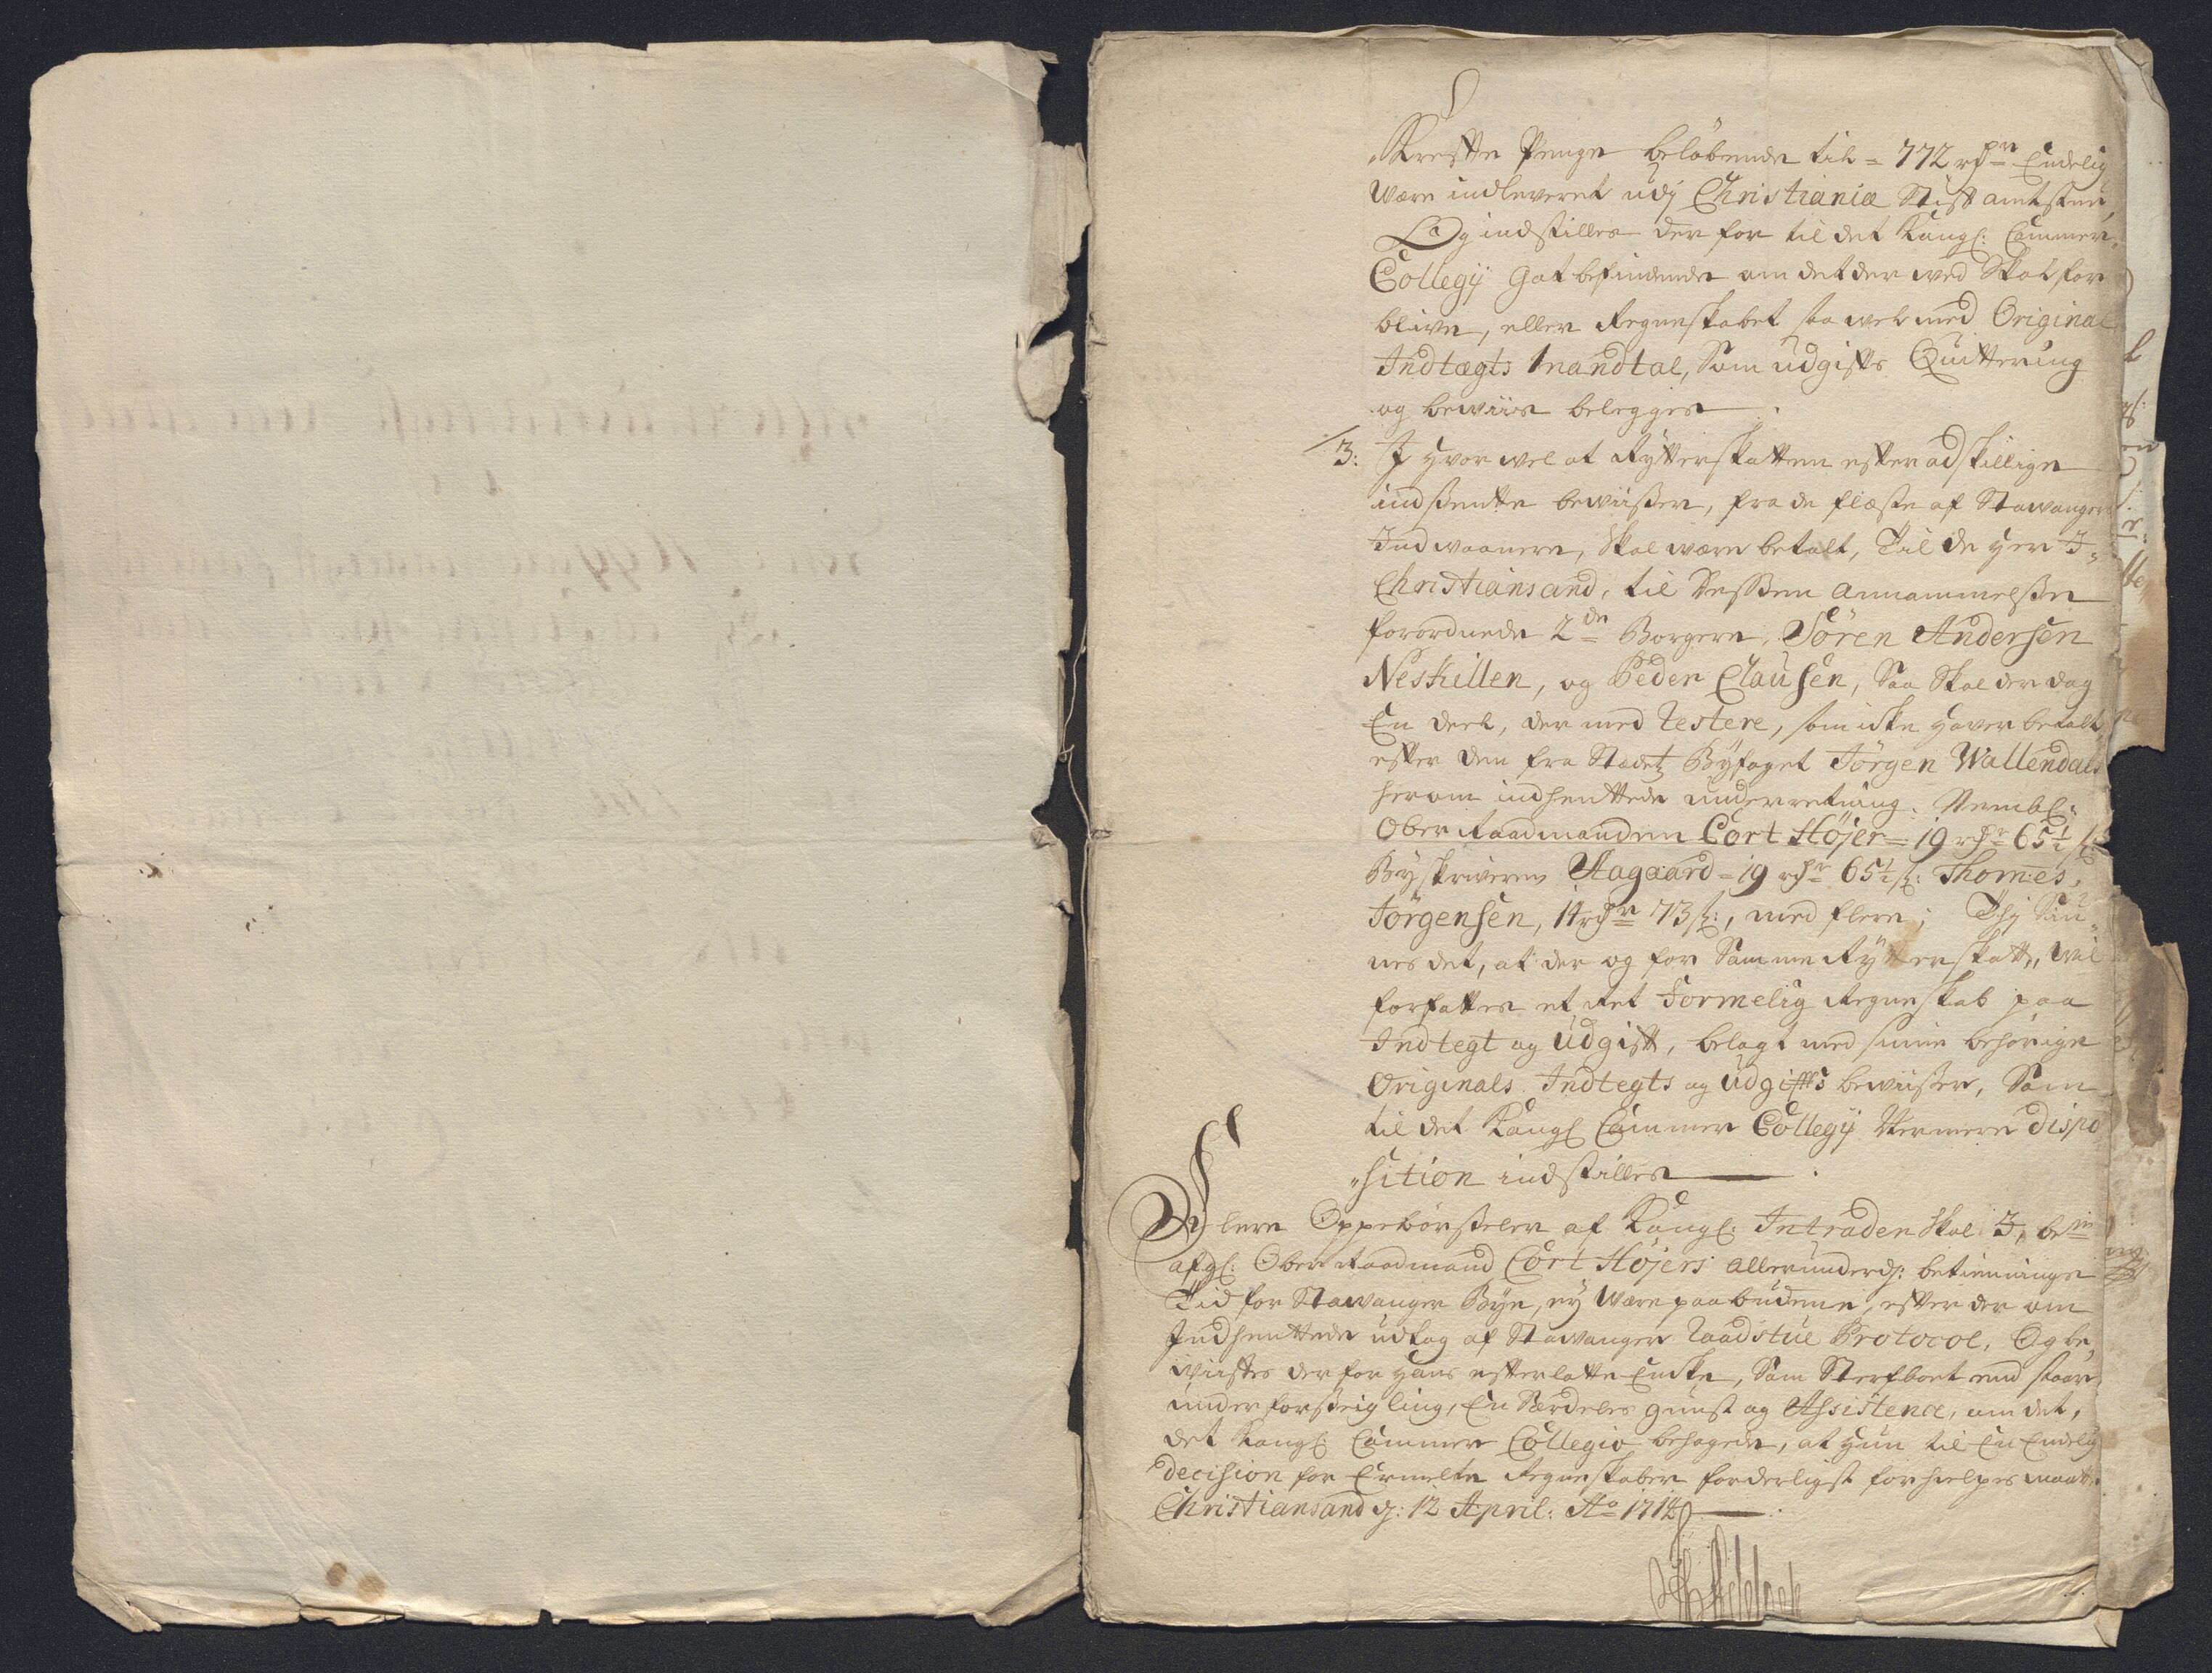 Krestte Penge belöbende till = 772 rdr Endelig
være indleveret udj Christianiæ Stift amtstue,
Og indstilles der for til det Kongl: Cammer,
Collegij Got befindende om det der ved skal for
blive, eller Regneskabet saa vel med Original
Indtægts Mandtal, som udgiffts Quittering
og beviis belegges
3: I hvor vel at Rytterskatten efter adskillige
indsentte beviisser, fra de flæste af Stavangers
Indvaanere, skal være betalt, Til de her I,
Christiansand, til dessen Annammelsse
forordnede 2de Borgere, Sören Andersen
Neskillen, og Peder Clausen, saa skal der dog
En deel, der med restere, som icke haver betalt,
efter den fra Stadens Byfoget Jörgen Wallendals
herom indhenttede underretning. Nembl:
Ober Raadmanden Cort Höjer = 19 rdr 65½ s:
Byskriveren Aagaard = 19 rdr 65½ s: Thomes,
Jörgensen, 14 rdr 73 s:, med flere; Thj Siu
nes det, at der og for Samme Rytterskatt, vil
forfattes et Ret Formelig Regneskab paa
Indtegt og Udgifft, belagt med sinne behörige
Originals Indtegts og Udgiffts beviisser, Som
til det Kongl Cammer Collegij Nermere dispo
"sition indstilles
Flere Oppebörsseler af Kongl: Intrader skal I, be
afgl: Ober Raadmand Cort Höjers allerunderd: betienninge
Tid for Stavanger Bye, ey være paabudene, efter der om
Indhenttede udtog af Stavanger Raadstue Protocol, Og be,
viistes der for hans efterlatte Encke, Som Sterfboet end staar
under forseigling, En Særdeles gunst og Assistence, om det,
det Kongl: Cammer Collegio behagede, at hun til En Endelig
decision for Ermelte Regneskaber forderligst forhielpes maatte
Christiansand d: 12 April: Ao 1718